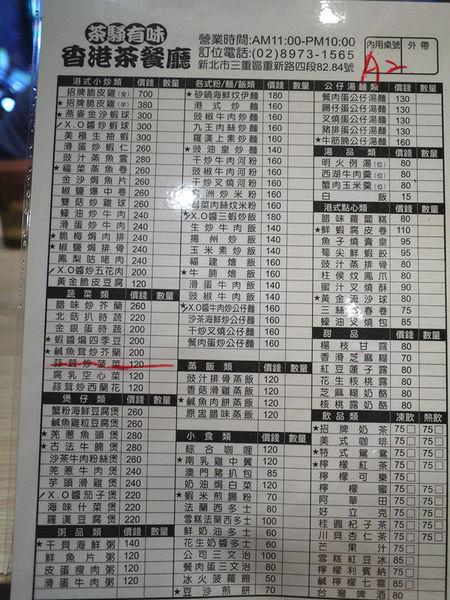 茶騷有味
香港茶餐廳
營業時間:AM11:00-PM10:00
訂位電話:(02)8973-1565
新北市三重區重新路四段82.84號
內用桌號 外帶
A2
港式小炒類 價錢 數量
★招牌脆皮雞(全) 700
★招牌脆皮雞(半) 380
★燕麥金沙蝦球 300
★X.O醬炒蝦球 300
美極生抽蝦 300
滑蛋炒蝦仁 260
豉汁蒸魚雲 280
★福菜蒸魚卷 260
金沙焗魚片 260
椒鹽爆中卷 260
雙菇炒雞球 260
蠔油炒牛肉 240
滑蛋炒牛肉 240
★脆梅焗肉排 240
★椒鹽焗排骨 240
鳳梨咕咾肉 240
X.O醬炒五花肉 200
黃金脆皮豆腐 200
蔬菜類 價錢 數量
腊味炒芥蘭 260
北菇扒時蔬 220
金銀蛋時蔬 200
★蝦醬焗四季豆 200
★鹹魚茸炒芥蘭 200
蒜茸炒菠菜 120
腐乳空心菜 120
蒜茸炒西蘭花 120
煲仔類 價錢 數量
蟹粉海鮮豆腐煲 260
鹹魚雞粒豆腐煲 260
★羌蔥魚頭煲 280
★古法牛腩煲 280
沙茶牛肉粉絲煲 260
羌蔥牛肉煲 240
芋頭滑雞煲 240
X.O醬茄子煲 220
海味什菜煲 220
羅漢豆腐煲 220
粥品類 價錢 數量
★干貝海鮮粥 140
鮮魚片粥 120
皮蛋瘦肉粥 120
滑蛋牛肉粥 120
各式粉/麵/飯類 價錢 數量
★砂鍋海鮮炆伊麵 180
港式炒麵 180
豉椒牛肉炒麵 180
九王肉絲炒麵 180
羅漢上素炒麵 180
★豉油皇炒麵 160
干炒牛肉河粉 160
豉椒牛肉河粉 160
干炒叉燒河粉 160
星洲炒米粉 160
雪菜肉絲炆米粉 160
X.O醬三蝦炒飯 160
生炒牛肉飯 140
揚州炒飯 140
玉米素炒飯 140
福建燴飯 160
★牛腩燴飯 160
滑蛋蝦仁燴飯 160
X.O醬牛肉炒公仔麵 160
沙茶海鮮炒公仔麵 160
干炒叉燒炒公仔麵 160
餐肉蛋炒公仔麵 160
蒸飯類 價錢 數量
豉汁排骨蒸飯 120
香菇滑雞蒸飯 120
★鹹魚肉餅蒸飯 120
原盅腊味蒸飯 120
小食類 價錢 數量
綜合咖哩 120
★南乳雞中翼 120
澳門豬扒包 100
奶油焗白菜 120
★蝦米煎腸粉 70
法蘭西多士 80
雪糕法蘭西多士 100
鮮奶油多士 80
花生奶醬多士 80
公司三文治 100
餐肉蛋三文治 80
冰火菠蘿飽 50
★豆沙煎餅 70
公仔湯麵類 價錢 數量
餐肉蛋公仔湯麵 130
腸仔蛋公仔湯麵 130
叉燒蛋公仔湯麵 130
豬排蛋公仔湯麵 130
★牛筋腩公仔湯麵 130
湯品類 價錢 數量
明火例湯(位) 80
西湖牛肉羹(位) 80
蟹肉玉米羹(位) 80
白飯 15
港式點心類 價錢 數量
腊味蘿蔔糕 80
★鮮蝦腐皮卷 110
魚子燒賣皇 95
筍尖鮮蝦餃 95
豉汁蒸排骨 80
柱侯炆鳳爪 80
蜜汁叉燒酥 90
★黃金流沙球 80
三絲炸春卷 75
蠔油叉燒包 85
甜品 價錢 數量
楊枝甘露 80
香滑芝麻糊 70
紅豆蓮子露 80
花生核桃露 80
芝麻糊奶酪 80
核桃露奶酪 80
飲品類 凍飲 熱飲
★招牌奶茶 75 75
美式咖啡 75 75
★特式鴛鴦 75 75
★檸檬紅茶 75 75
檸檬可樂 75 75
檸檬蜜 75 75
阿華田 75 75
好立克 75 75
桂圓杞子茶 75 75
芒果汁 75
雪糕紅豆冰 85
檸檬利賓納 75
鹹檸檬七喜 85
台灣啤酒 80